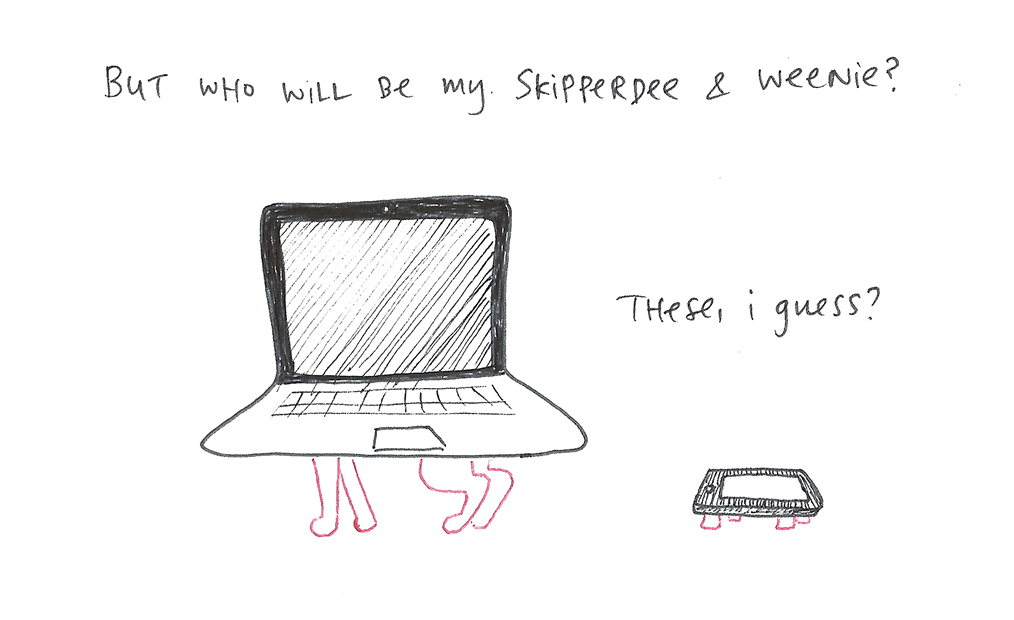 BUT WHO WILL BE my SKIPPERDEE & WEENIE?
THESE, i guess?